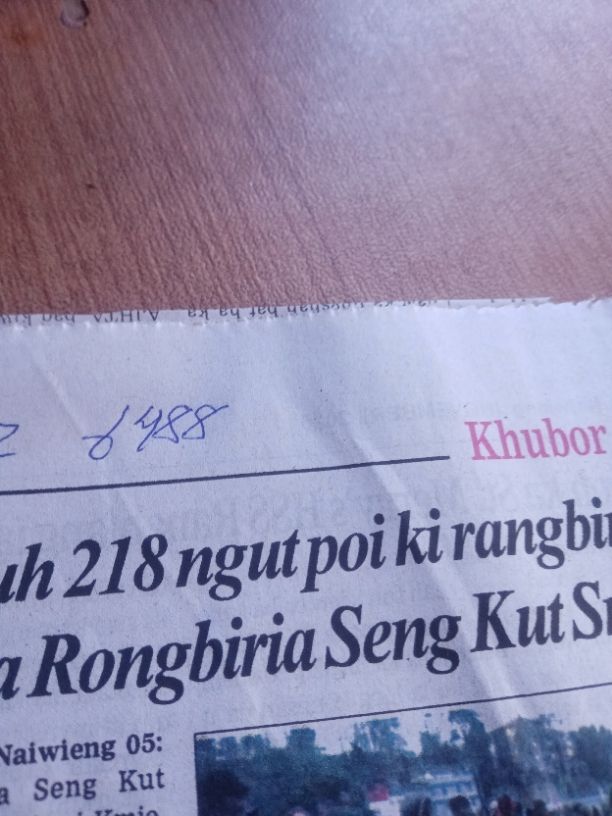 Khubor
uh 218 ngut poi ki rangbir
a Rongbiria Seng Kut Sn
Naiwieng 05:
a Seng Kut